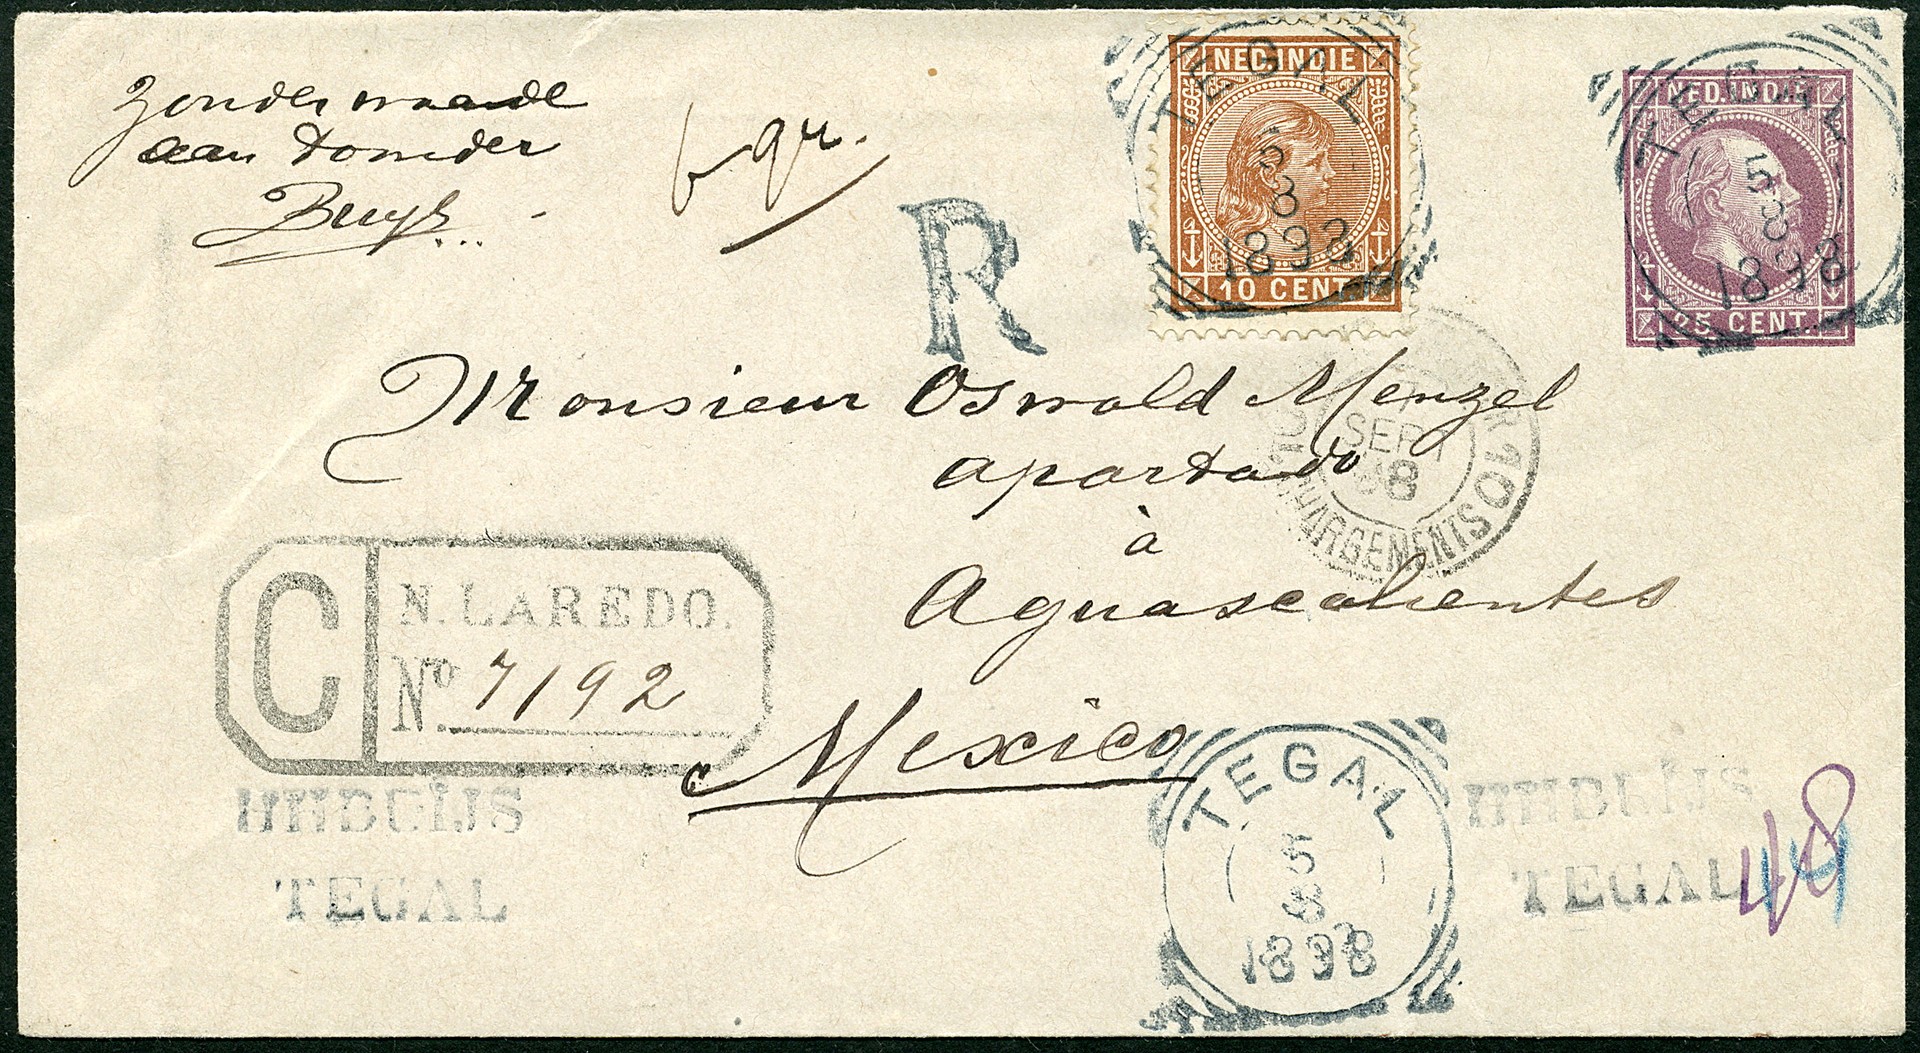 Zonder waarde
aan Donider
Buys
6 gr.
R
NED. INDIE
10 CENT
TEGAL
5
8
1898
NED. INDIE
25 CENT.
TEGAL
5
8
1898
Monsieur Oswald Menzel
apartado
à
Aguascalientes
Mexico
SEPT
98
CHARGEMENTS
C
N. LAREDO.
No. 7192
HHBUIJS
TEGAL
TEGAL
5
8
1898
HHBUIJS
TEGAL
48
44